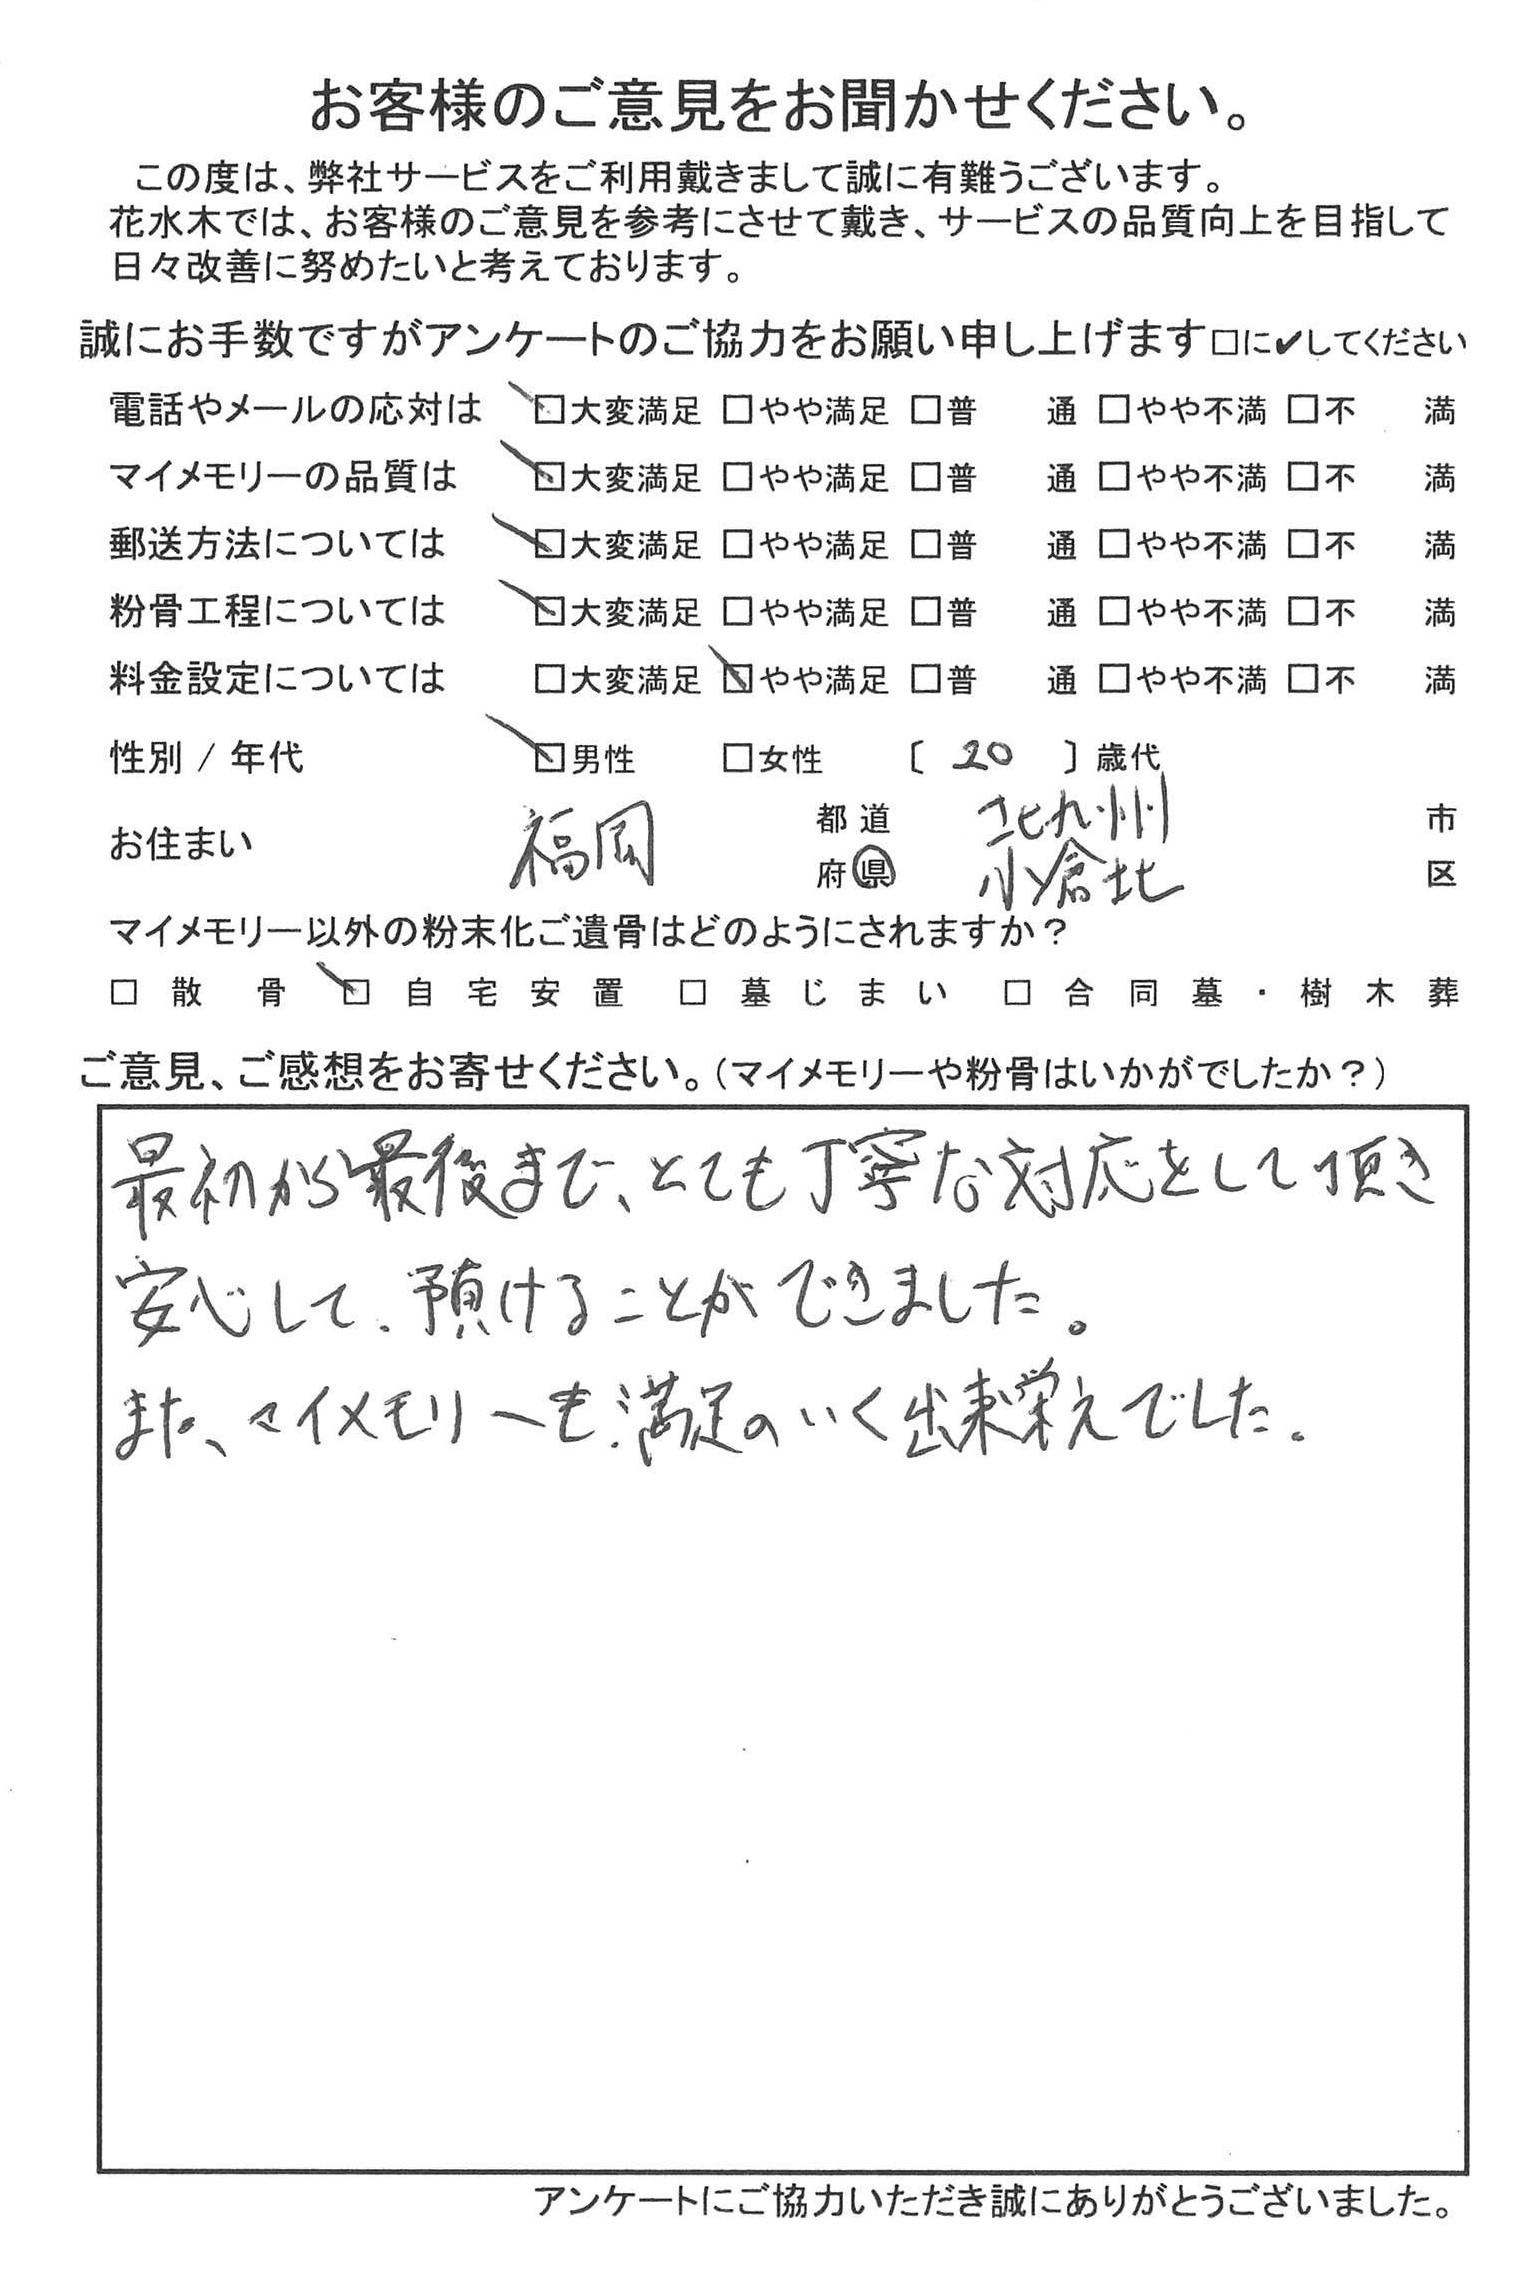 お客様のご意見をお聞かせください。
この度は、弊社サービスをご利用戴きまして誠に有難うございます。
花水木では、お客様のご意見を参考にさせて戴き、サービスの品質向上を目指して
日々改善に努めたいと考えております。
誠にお手数ですがアンケートのご協力をお願い申し上げます□に✔してください
電話やメールの応対は ☑大変満足 □やや満足 □普通 □やや不満 □不満
マイメモリーの品質は ☑大変満足 □やや満足 □普通 □やや不満 □不満
郵送方法については ☑大変満足 □やや満足 □普通 □やや不満 □不満
粉骨工程については ☑大変満足 □やや満足 □普通 □やや不満 □不満
料金設定については □大変満足 ☑やや満足 □普通 □やや不満 □不満
性別 / 年代 ☑男性 □女性 〔 20 〕歳代
お住まい 福岡 都道府県 北九州 市
小倉北 区
マイメモリー以外の粉末化ご遺骨はどのようにされますか?
□散骨 ☑自宅安置 □墓じまい □合同墓・樹木葬
ご意見、ご感想をお寄せください。(マイメモリーや粉骨はいかがでしたか?)
最初から最後まで、とても丁寧な対応をして頂き
安心して、預けることができました。
また、マイメモリーも満足のいく出来栄えでした。
アンケートにご協力いただき誠にありがとうございました。